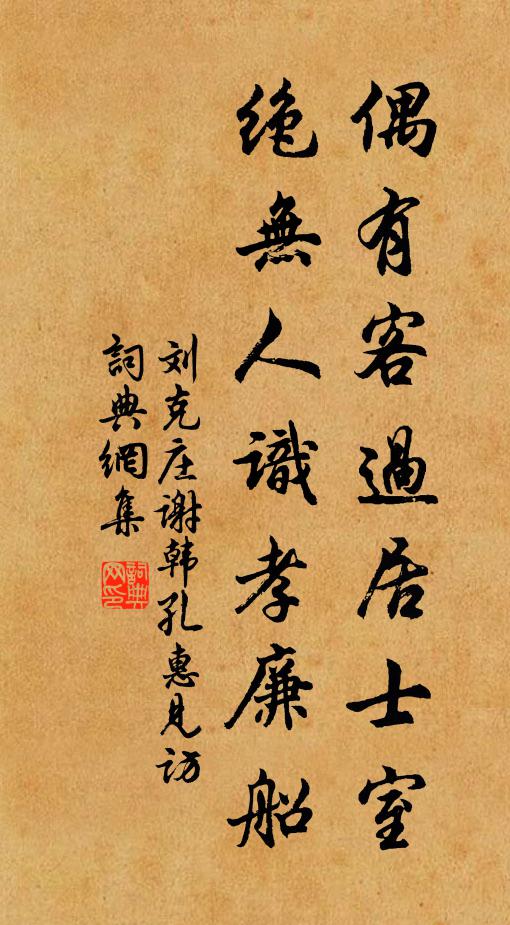 偶有客過居士室
绝無人識孝廉船
刘克庄谢韩孔惠見访
詞典網集
詞典网印